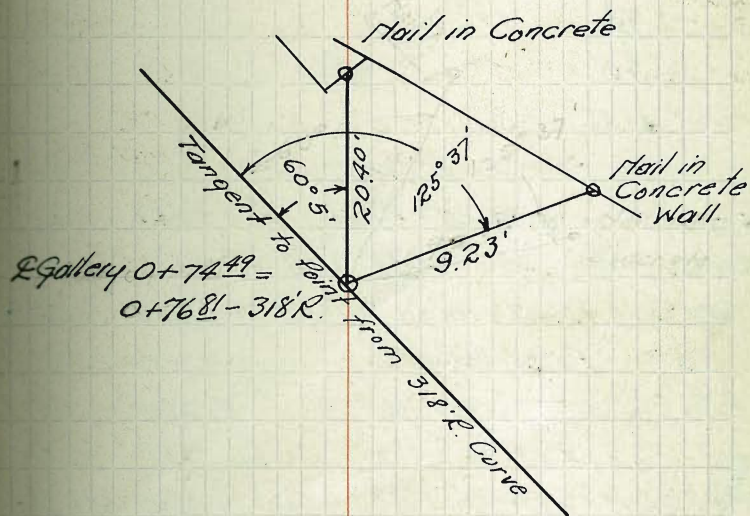 Nail in Concrete
Nail in
Concrete
Wall
Tangent to Point from 318'R. Curve
60° 5'
20.40'
125° 37'
9.23'
℄ Gallery 0+74 49 =
0+76 81 - 318'R.